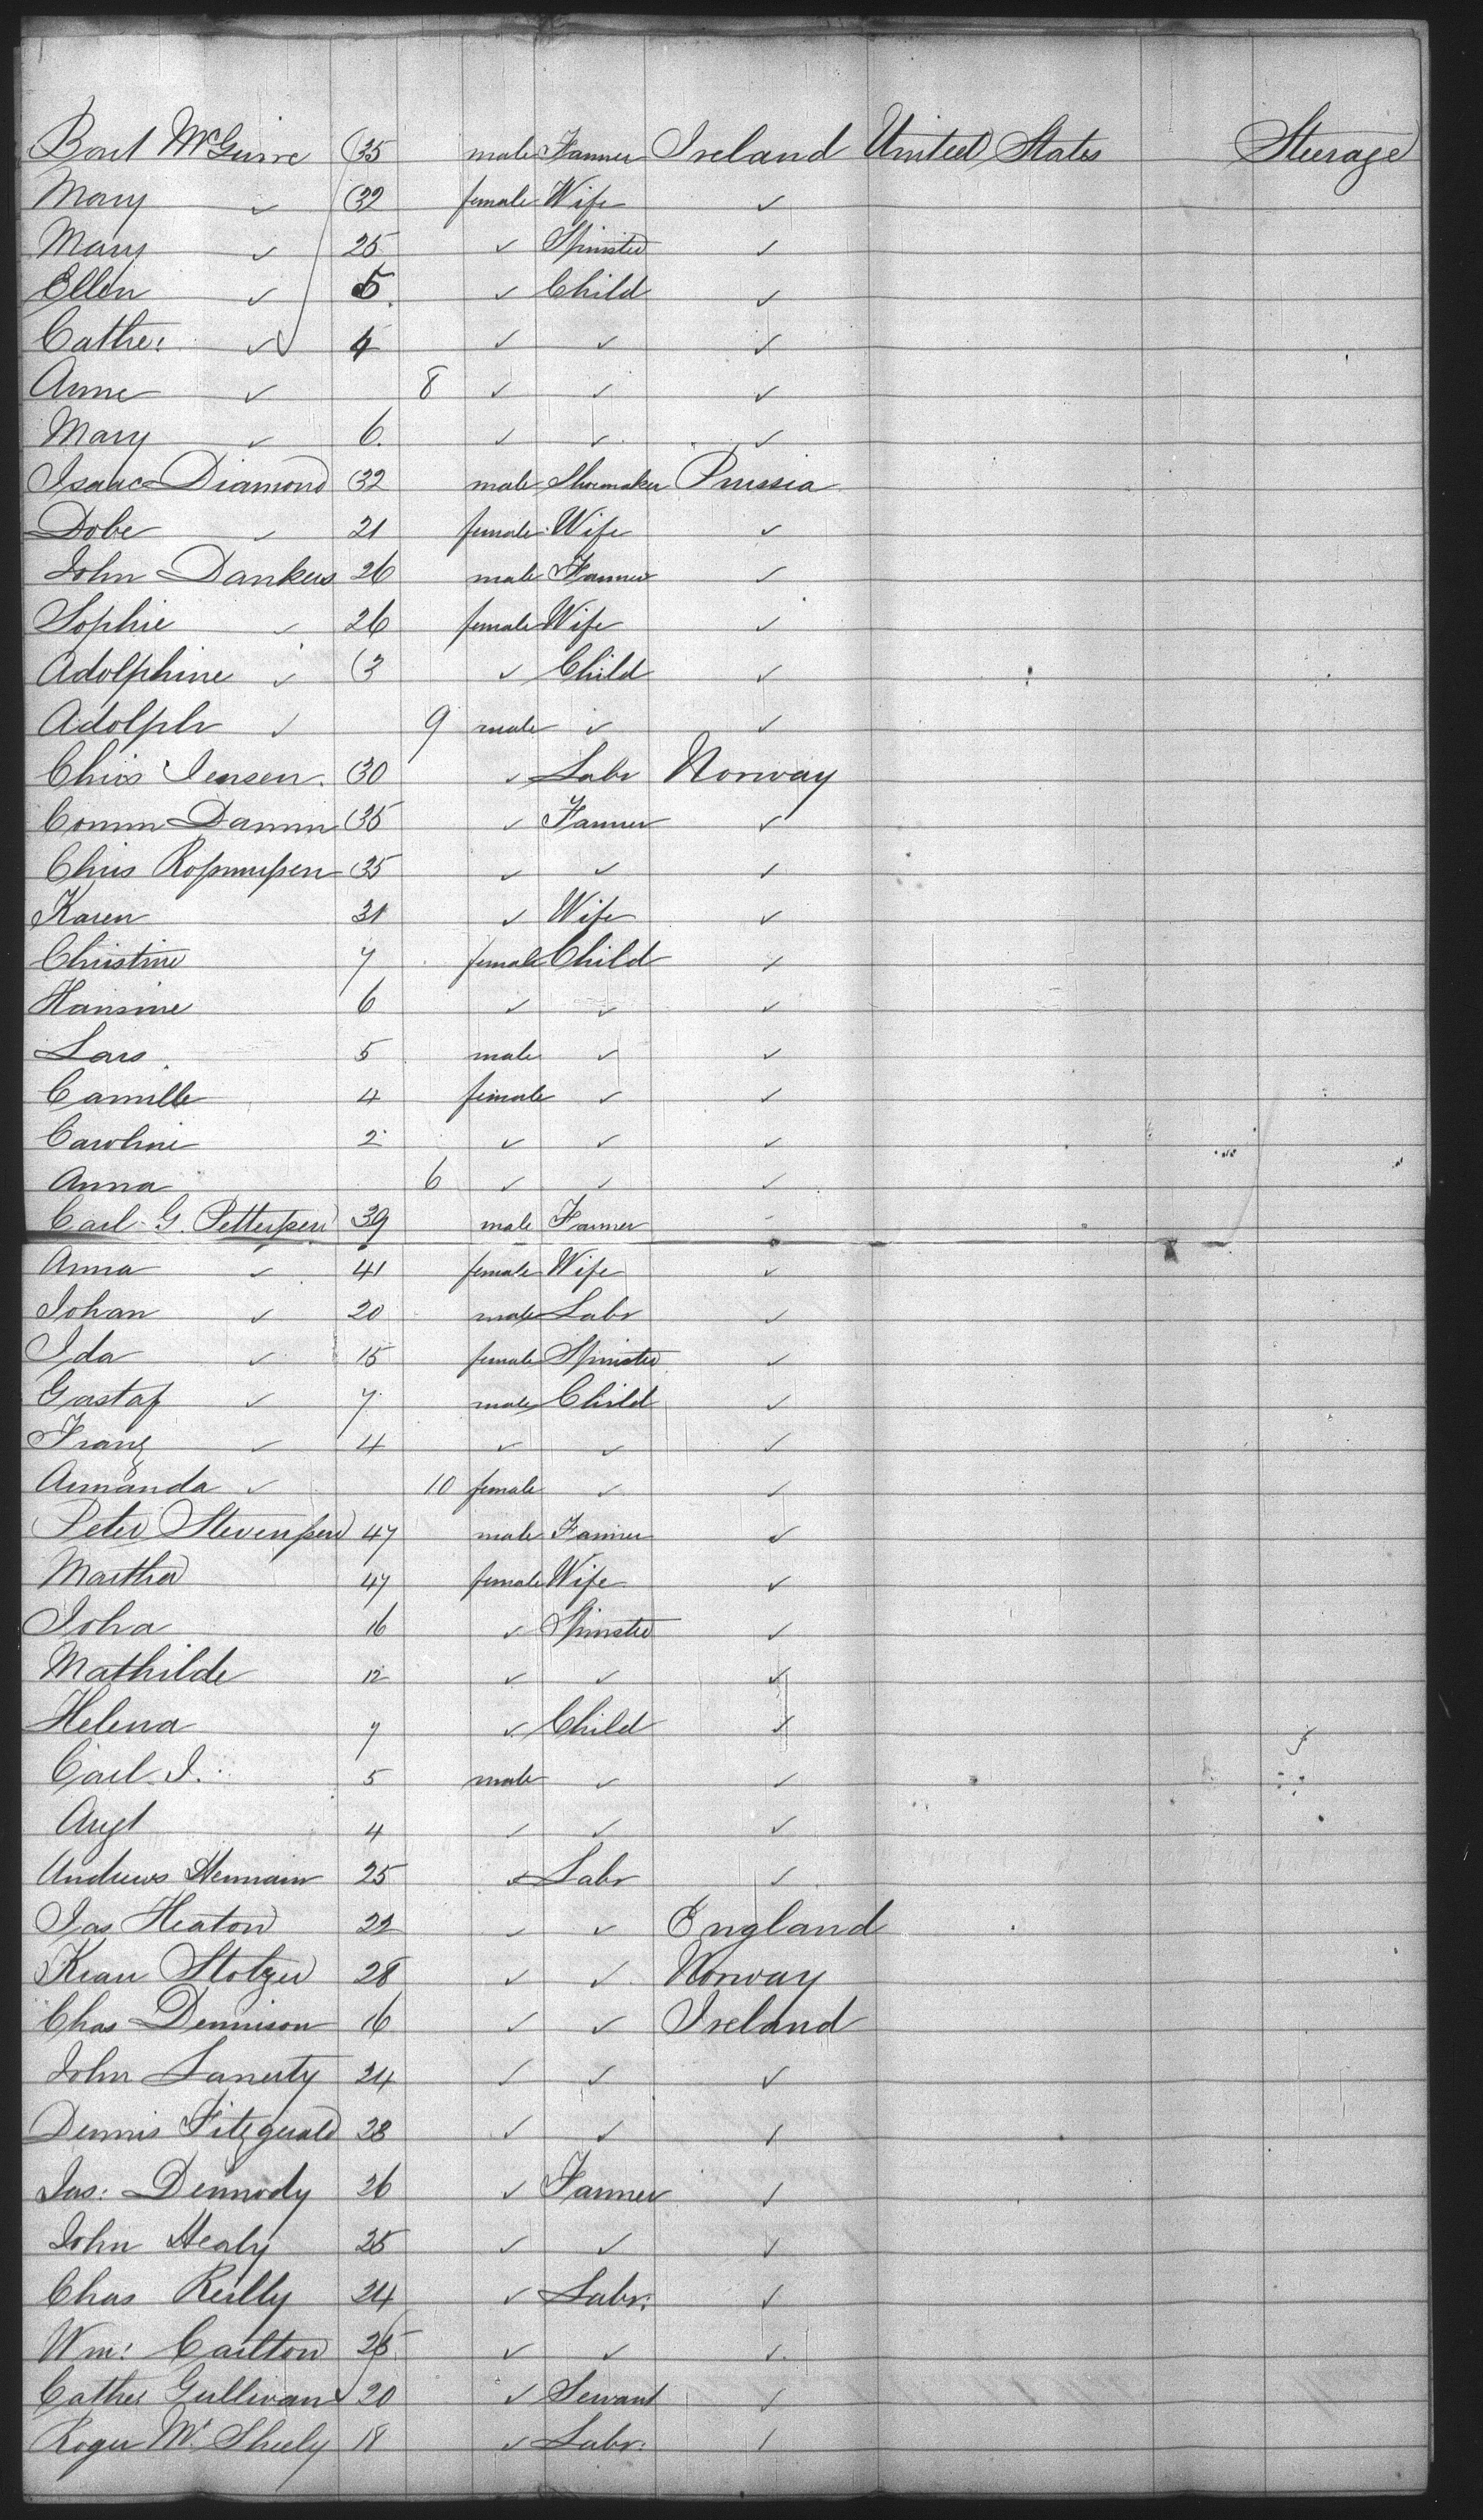 Bart McGuire 35 male Farmer Ireland United States Steerage
Mary ✓ 32 female Wife ✓
Mary ✓ 25 ✓ Spinster ✓
Ellen ✓ 5 ✓ Child ✓
Cathe: ✓ 4 ✓ ✓ ✓
Anne ✓ 8 ✓ ✓ ✓
Mary ✓ 6. ✓ ✓ ✓
Isaac Diamond 32 male Shoemaker Prussia
Dobe ✓ 21 female Wife ✓
John Dankers 26 male Farmer ✓
Sophie ✓ 26 female Wife ✓
Adolphine ✓ 3 ✓ Child ✓
Adolph ✓ 9 male ✓ ✓
Chris Jensen. 30 ✓ Labr Norway
Damm 35 ✓ Farmer ✓
Chris 35 ✓ ✓ ✓
Karen 31 ✓ Wife ✓
Christine 7 female Child ✓
Hansine 6 ✓ ✓ ✓
Lars 5 male ✓ ✓
Camille 4 female ✓ ✓
Caroline 2 ✓ ✓ ✓
Anna 6 ✓ ✓ ✓
Carl G. Pettersen 39 male Farmer
Anna ✓ 41 female Wife ✓
Johan ✓ 20 male Labr ✓
Ida ✓ 15 female Spinster ✓
Gustaf ✓ 7 male Child ✓
Franz ✓ 4 ✓ ✓ ✓
Amanda ✓ 10 female ✓ ✓
Peter Stevensen 47 male Farmer ✓
Martha 47 female Wife ✓
Joha 16 ✓ Spinster ✓
Mathilde 12 ✓ ✓ ✓
Helena 7 ✓ Child ✓
Carl J. 5 male ✓ ✓
Augt 4 ✓ ✓ ✓
Andrews Hermain 25 ✓ Labr ✓
Jas Heaton 22 ✓ ✓ England
Stolzer 28 ✓ ✓ Norway
Chas Dennison 16 ✓ ✓ Ireland
John Lanerty 24 ✓ ✓ ✓
Dennis Fitzgerald 28 ✓ ✓ ✓
Jas: Dermody 26 ✓ Farmer ✓
John Healy 25 ✓ ✓ ✓
Chas Reilly 24 ✓ Labr: ✓
Wm: Carlton 25 ✓ ✓ ✓
Cathe Gullivan 20 ✓ Servant ✓
Roger Mc Sheely 18 ✓ Labr: ✓